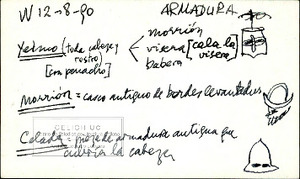 W 12-8-90 ARMADURA
Yelmo (toda cabeza y rostro) [con penacho]
morrión
visera [cala la visera]
babera
Morrión = casco antiguo de bordes levantados
Celada = pieza de armadura antigua que
cubría la cabeza
CELICH UC